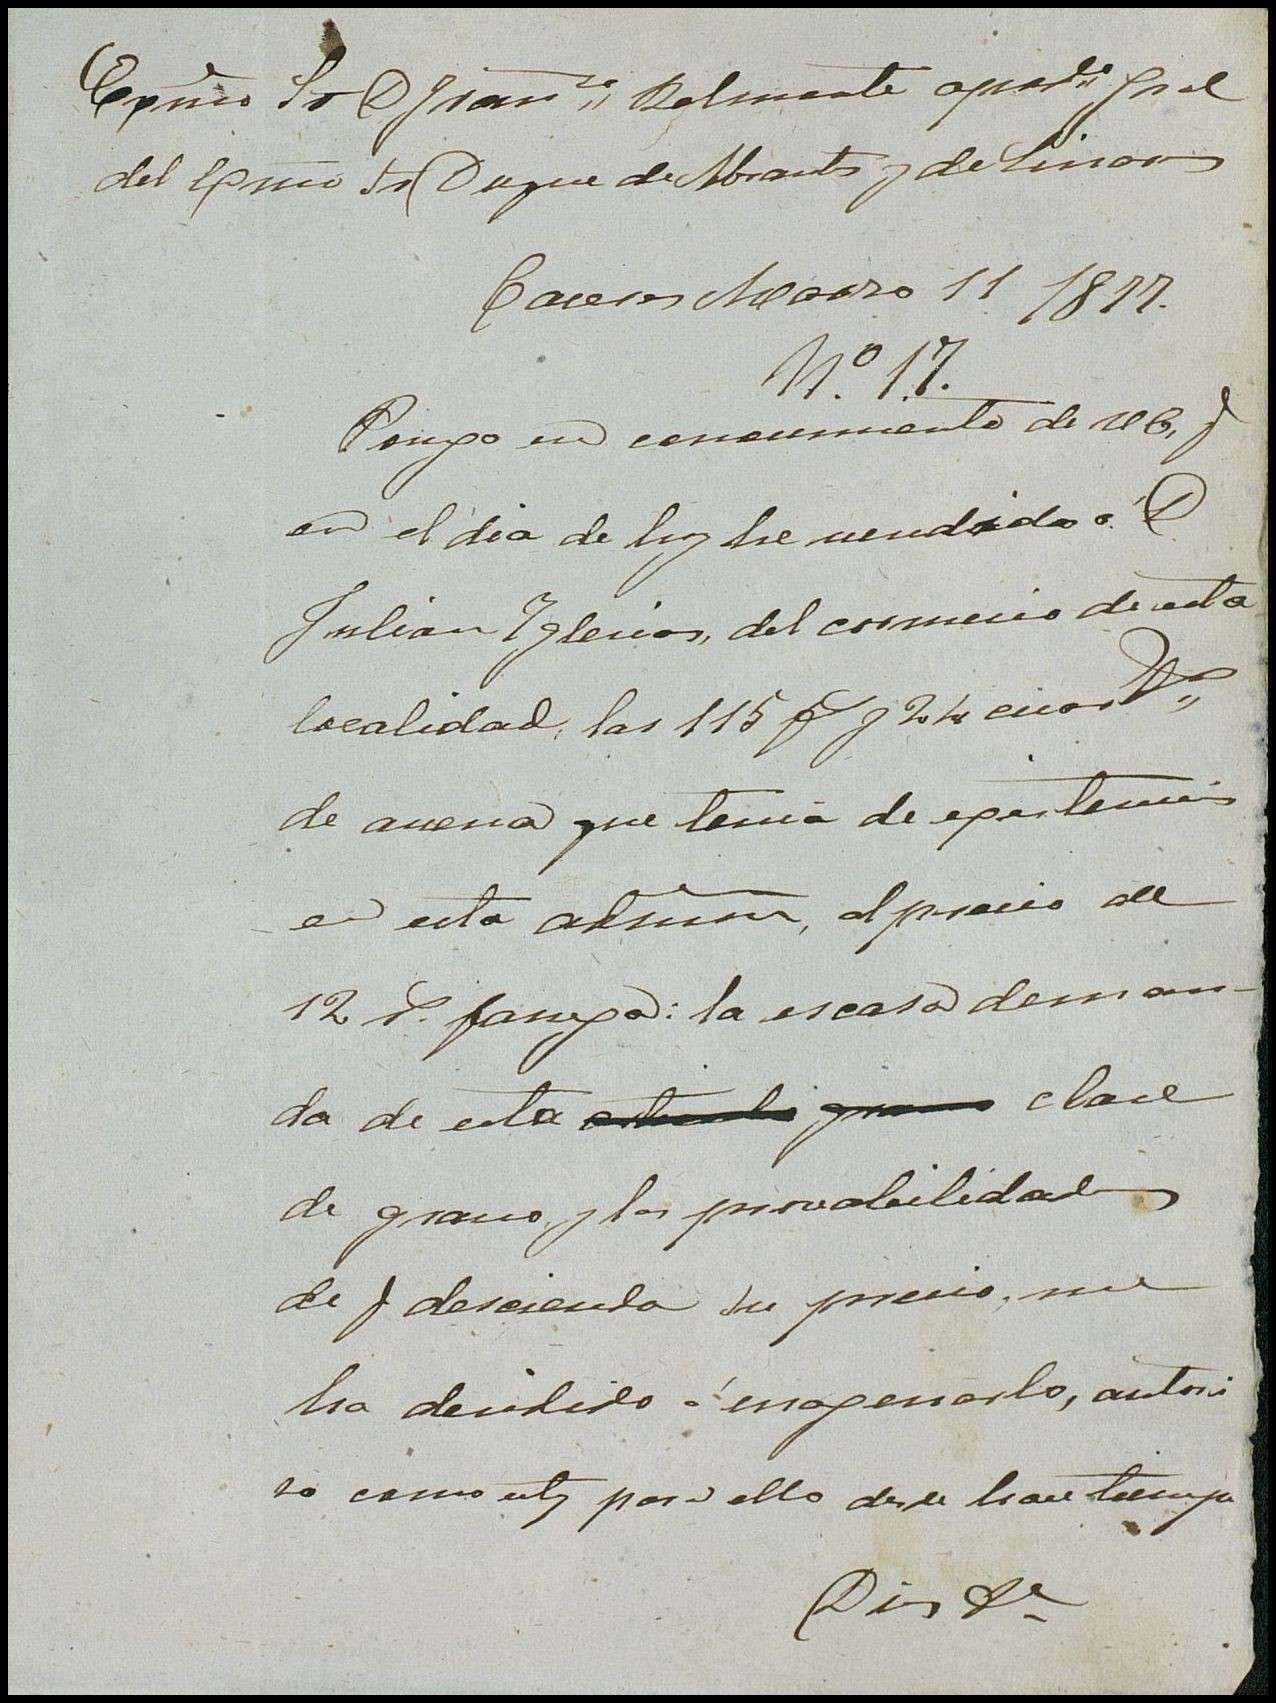 Exmo Sr D Franco Belmonte apodo Gral
del Exmo Sr Duque de Abrantes y de Linares
Caceres Marzo 11 1877.
No. 17.
Pongo en conocimiento de V.E. q
en el dia de hoy he vendido á D
Julian Yglesias, del comercio de esta
localidad, las 115 f y 24 cuar
de avena que tenia de existencias
en esta admon, al precio de
12 r. fanega: la escasa deman-
da de esta grano clase
de grano, y las provabilidades
de q descienda su precio, me
ha decidido á enagenarlo, autori
so como estoy para ello desde hace tiempo
Dios &a